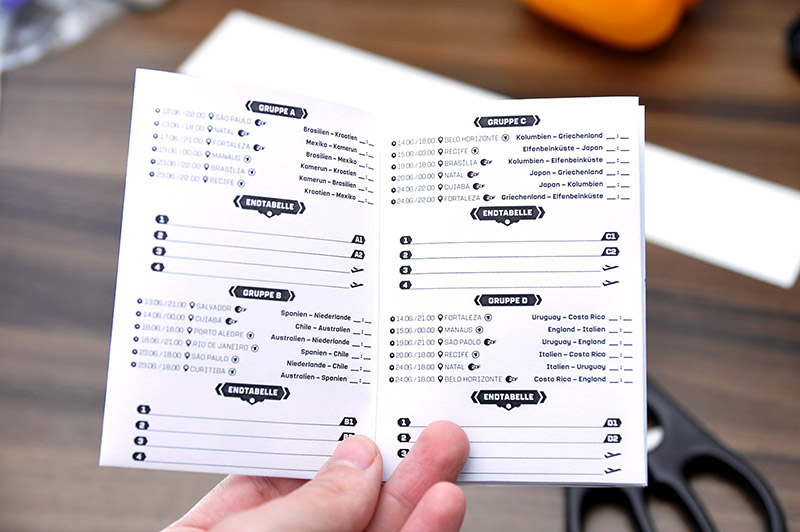 GRUPPE A
12.06./22:00 SÃO PAULO Brasilien – Kroatien __:__
13.06./18:00 NATAL Mexiko – Kamerun __:__
17.06./21:00 FORTALEZA Brasilien – Mexiko __:__
19.06./00:00 MANAUS Kamerun – Kroatien __:__
23.06./22:00 BRASÍLIA Kamerun – Brasilien __:__
23.06./22:00 RECIFE Kroatien – Mexiko __:__
ENDTABELLE
1 A1
2 A2
3
4
GRUPPE B
13.06./21:00 SALVADOR Spanien – Niederlande __:__
14.06./00:00 CUIABÁ Chile – Australien __:__
18.06./18:00 PORTO ALEGRE Australien – Niederlande __:__
18.06./21:00 RIO DE JANEIRO Spanien – Chile __:__
23.06./18:00 SÃO PAULO Niederlande – Chile __:__
23.06./18:00 CURITIBA Australien – Spanien __:__
ENDTABELLE
1 B1
2
3
4
GRUPPE C
14.06./18:00 BELO HORIZONTE Kolumbien – Griechenland __:__
15.06./03:00 RECIFE Elfenbeinküste – Japan __:__
19.06./18:00 BRASÍLIA Kolumbien – Elfenbeinküste __:__
20.06./00:00 NATAL Japan – Griechenland __:__
24.06./22:00 CUIABÁ Japan – Kolumbien __:__
24.06./22:00 FORTALEZA Griechenland – Elfenbeinküste __:__
ENDTABELLE
1 C1
2 C2
3
4
GRUPPE D
14.06./21:00 FORTALEZA Uruguay – Costa Rica __:__
15.06./00:00 MANAUS England – Italien __:__
19.06./21:00 SÃO PAULO Uruguay – England __:__
20.06./18:00 RECIFE Italien – Costa Rica __:__
24.06./18:00 NATAL Italien – Uruguay __:__
24.06./18:00 BELO HORIZONTE Costa Rica – England __:__
ENDTABELLE
1 D1
2 D2
3